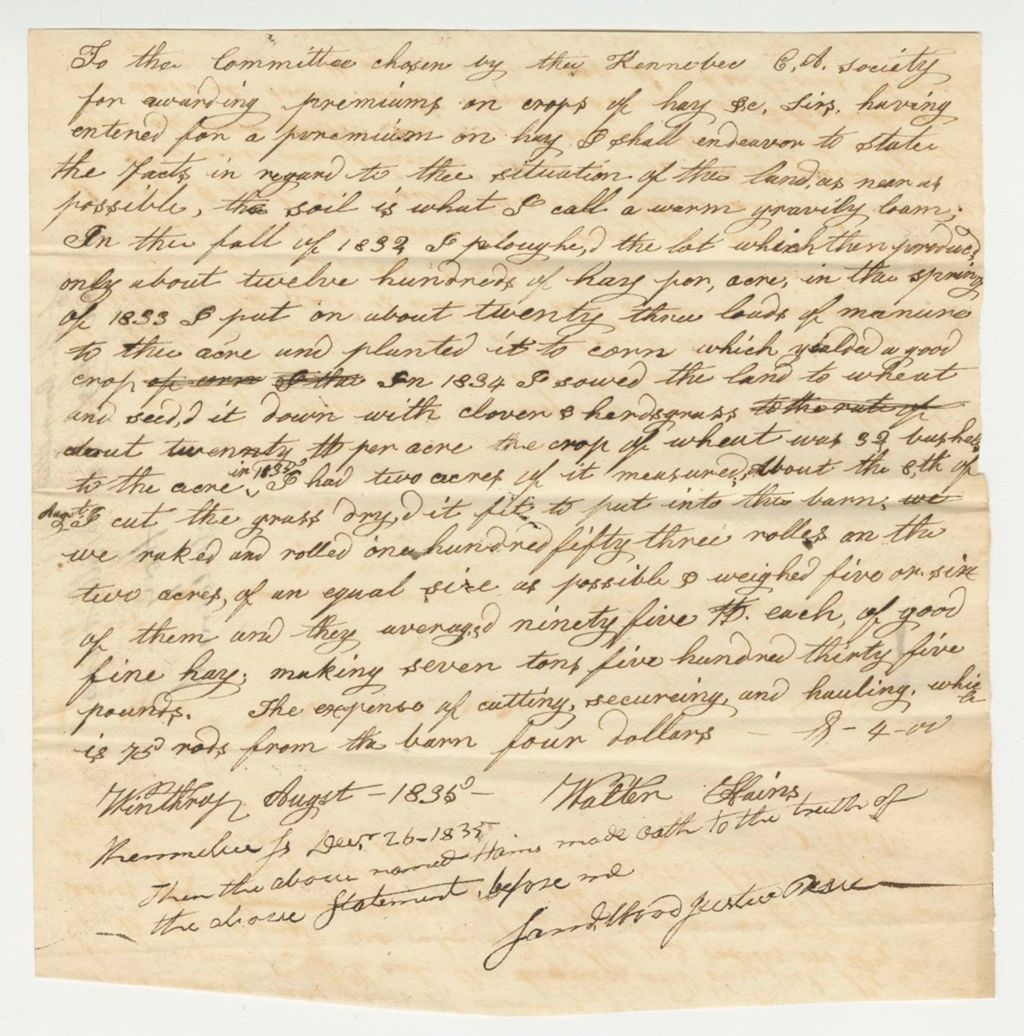 To the Committee chosen by the Kennebec C. A. society
for awarding premiums on crops of hay &c, Sirs, having
entered for a premium on hay I shall endeavor to state
the facts in regard to the situation of the land, as near as
possible, the soil is what I call a warm gravily loam;
In the fall of 1832 I ploughe,d the lot which then produc,d
only about twelve hundreds of hay per, acre, in the spring
of 1833 I put on about twenty three loads of manure
to the acre and planted it to corn which yielded a good
crop of corn I the In 1834 I sowed the land to wheat
and seed,d it down with clover & herdsgrass to the rate of
about twennty lb per acre the crop of wheat was 32 bushels
to the acre, in 1835 I had two acres of it measured, About the 8th of
Augst I cut the grass dry,d it fit to put into the barn; we
we raked and rolled one hundred fifty three rolles on the
two acres, of an equal size as possible & weighed five or six
of them and they averag,d ninety five lb. each, of good
fine hay; making seven tons five hundred thirty five
pounds. The expense of cutting, secureing, and hauling, which
is 75 rods from the barn four dollars - $ - 4-00
Winthrop Augst - 1835 - Walter Hains
Kennebec Ss Decr 26-1835
Then the above named Hains made oath to the truth of
the above Statement, before me
Saml Wood Justice Peace